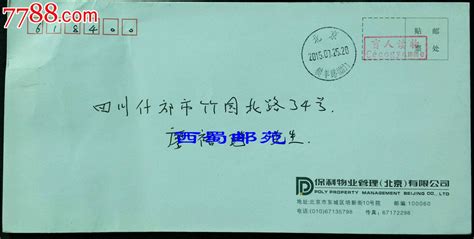 7788.com
618400
北京
2015.01.25.20
贴邮
票处
盲人读物
Cecogramme
四川什邡市竹园北路34号
廖 先生
西蜀邮苑
保利物业管理(北京)有限公司
POLY PROPERTY MANAGEMENT BEIJING CO., LTD
地址:北京市东城区培新街10号院 邮编:100060
电话:(010)67135798 传真:67172298